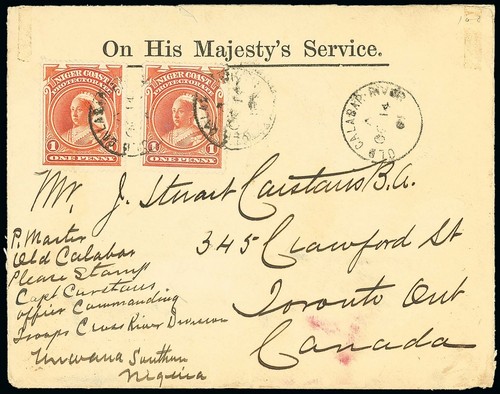 On His Majesty's Service.
NIGER COAST
PROTECTORATE
1 ONE PENNY 1
NIGER COAST
PROTECTORATE
1 ONE PENNY 1
OLD CALABAR RIVER
OC 14
Mr. J. Stuart Carstairs B.A.
345 Crawford St
Toronto Ont
Canada
P. Master
Old Calabar
Please Stamp
Capt Carstairs.
Officer Commanding
Troops Cross River Division
Unwana Southern
Nigeria